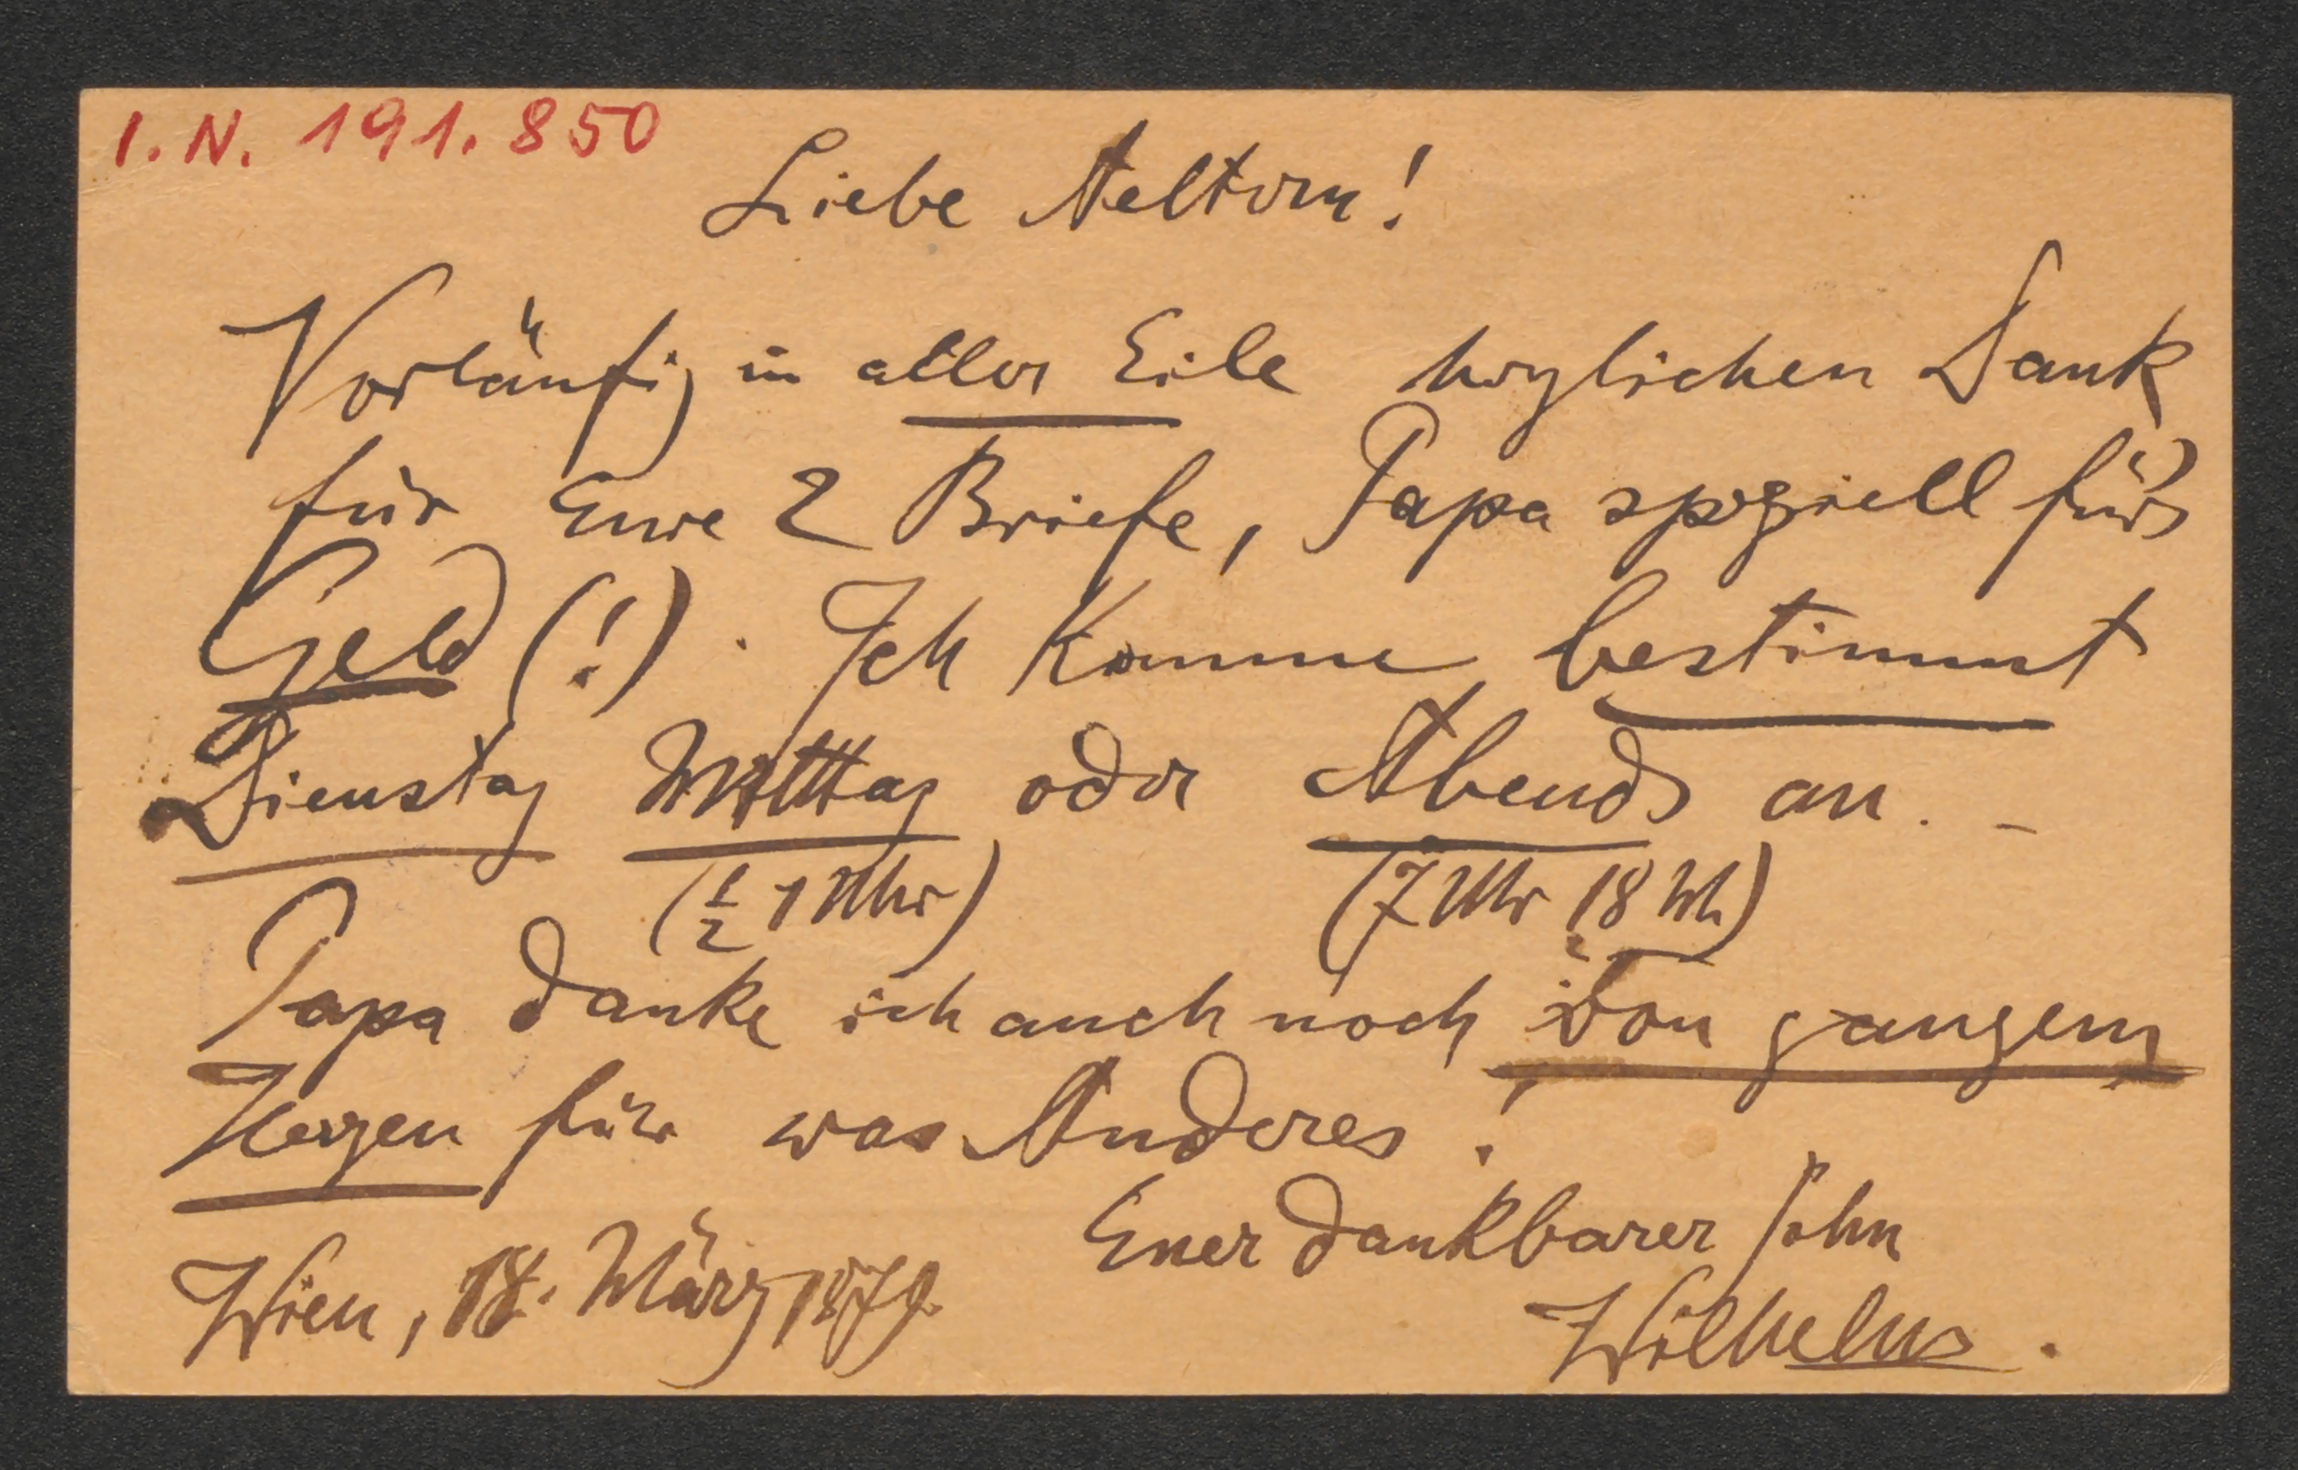 I.N. 191.850
Liebe Aeltern!
Vorläufig in aller Eile herzlichen Dank
für Eure 2 Briefe, Papa speziell für's
Geld (!). Ich komme bestimmt
Dienstag Mittag oder Abends an. –
(½ 1 Uhr) (7 Uhr 18 M)
Papa danke ich auch noch von ganzem
Herzen für was Anderes!
Euer dankbarer Sohn
Wien, 18. März 1879
Wilhelm.